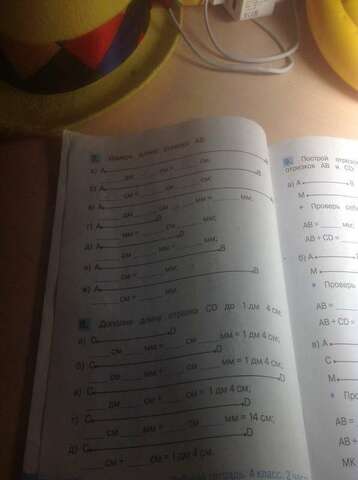 7. Измерь длину отрезка AB.
а) A B
дм см = см;
б) A B
см = см;
в) A B
дм см мм = мм;
г) A B
мм = см мм;
д) A B
см мм = мм;
е) A B
см = мм;
ж) A B
см = мм.
8. Дополни длину отрезка CD до 1 дм 4 см:
а) C D
см мм + см мм = 1 дм 4 см;
б) C D
см мм + см мм = 1 дм 4 см;
в) C D
дм см + см = 1 дм 4 см;
г) C D
см мм + см мм = 14 см;
д) C D
см + см = 1 дм 4 см.
тетрадь, 4 класс, 2 часть
9. Построй
отрезков AB и CD:
а) A B
M
• Проверь себя
AB = мм;
AB + CD =
б) A B
M
• Проверь
AB =
AB + CD =
в) A
C
M
• Про
AB =
AB +
MK